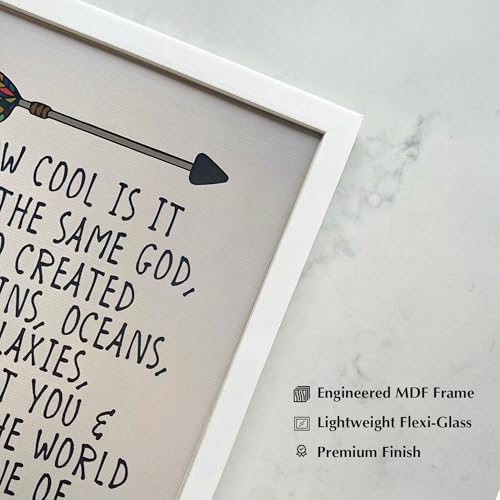 COOL IS IT
THE SAME GOD,
CREATED
OCEANS,
YOU &
WORLD
OF
Engineered MDF Frame
Lightweight Flexi-Glass
Premium Finish